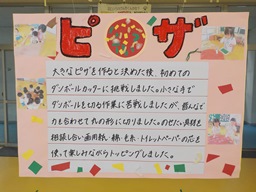 ピザ
大きなピザを作ると決めた後、初めての
ダンボールカッターに挑戦しました。小さな力で
ダンボールを切る作業に苦戦しましたが、皆んなで
力を合わせて丸の形に切りました。のせたい具材を
相談し合い画用紙・綿・毛糸・トイレットペーパーの芯を
使って楽しみながらトッピングしました。